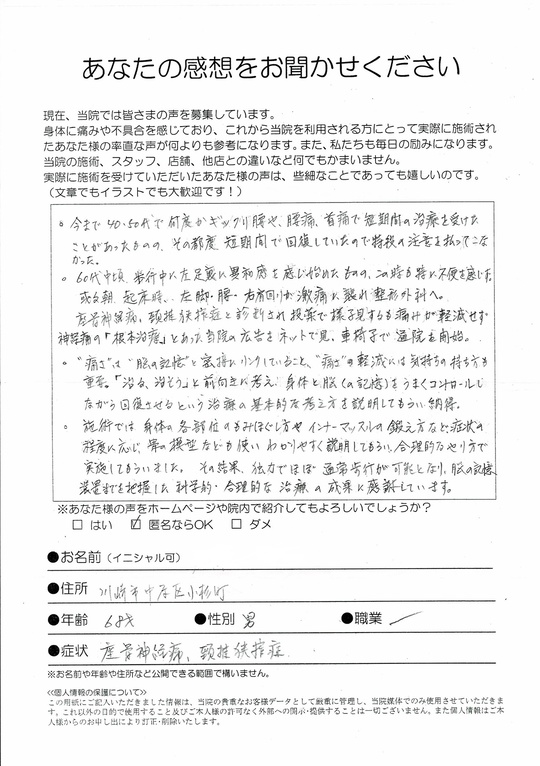 あなたの感想をお聞かせください
現在、当院では皆さまの声を募集しています。
身体に痛みや不具合を感じており、これから当院を利用される方にとって実際に施術され
たあなた様の率直な声が何よりも参考になります。また、私たちも毎日の励みになります。
当院の施術、スタッフ、店舗、他店との違いなど何でもかまいません。
実際に施術を受けていただいたあなた様の声は、些細なことであっても嬉しいのです。
（文章でもイラストでも大歓迎です！）
。今まで40・50代で何度かギックリ腰や、腰痛、首痛で短期間の治療を受けた
ことがあったものの、その都度短期間で回復していたので特段の注意を払ってこな
かった。
。60代中頃、歩行中に左足裏に異和感を感じ始めたものの、この時も特に不便を感じず。
或る朝、起床時、左脚・腰・右肩回りが激痛に襲れ整形外科へ。
座骨神経痛、頸椎狭搾症と診断され投薬で様子見するも痛みが軽減せず
神経痛の「根本治療」とあった当院の広告をネットで見、車椅子で通院を開始。
。"痛さ"は"脳の記憶"と密接にリンクしていること、"痛さ"の軽減には気持ちの持ち方も
重要。「治る、治そう」と前向きに考え、身体と脳（の記憶）をうまくコントロールし
ながら回復させるという治療の基本的な考え方を説明してもらい納得。
。施術では身体の各部位のもみほぐし方やインナーマッスルの鍛え方など、症状の
程度に応じ、骨の模型なども使いわかりやすく説明してもらい、合理的なやり方で
実施してもらいました。その結果、独力でほぼ通常歩行が可能となり、脳の記憶
装置までを把握した科学的・合理的な治療の成果に感謝しています。
※あなた様の声をホームページや院内で紹介してもよろしいでしょうか？
□ はい ☑ 匿名ならOK □ ダメ
●お名前（イニシャル可）
●住所 川崎市中原区小杉町
●年齢 68才 ●性別 男 ●職業
●症状 座骨神経痛、頸椎狭搾症
※お名前や年齢や住所など公開できる範囲で構いません。
<<個人情報の保護について>>
この用紙にご記入いただきました情報は、当院の貴重なお客様データとして厳重に管理し、当院媒体でのみ使用させていただきま
す。これ以外の目的で使用すること及びご本人様の許可なく外部への開示・提供することは一切ございません。また個人情報はご本
人様からのお申し出により訂正・削除いたします。